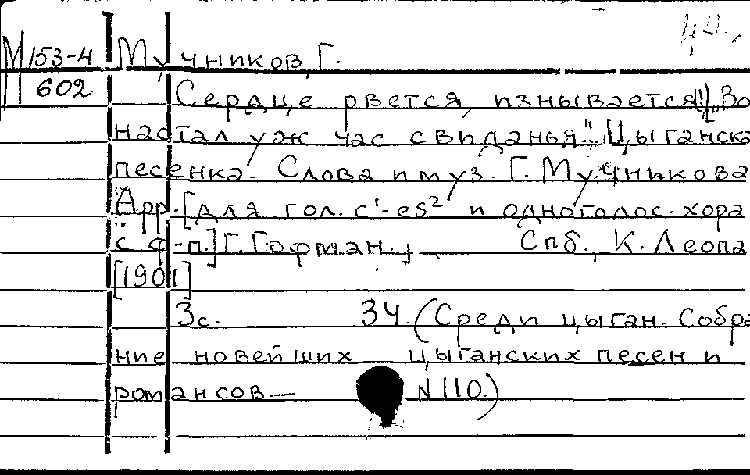 М 153-4 Мучников, Г.
602 Сердце рвется, изнывается! „Во
настал уж час свиданья". Цыганска
песенка. Слова и муз. Г. Мучникова
Арр. [для гол. c¹-es² и одноголос. хора
с ф-п.] Г. Гофман.+ Спб., К. Леопа
[1901]
3с. 34. (Среди цыган. Собра
ние новейших цыганских песен и
романсов— N 110.)